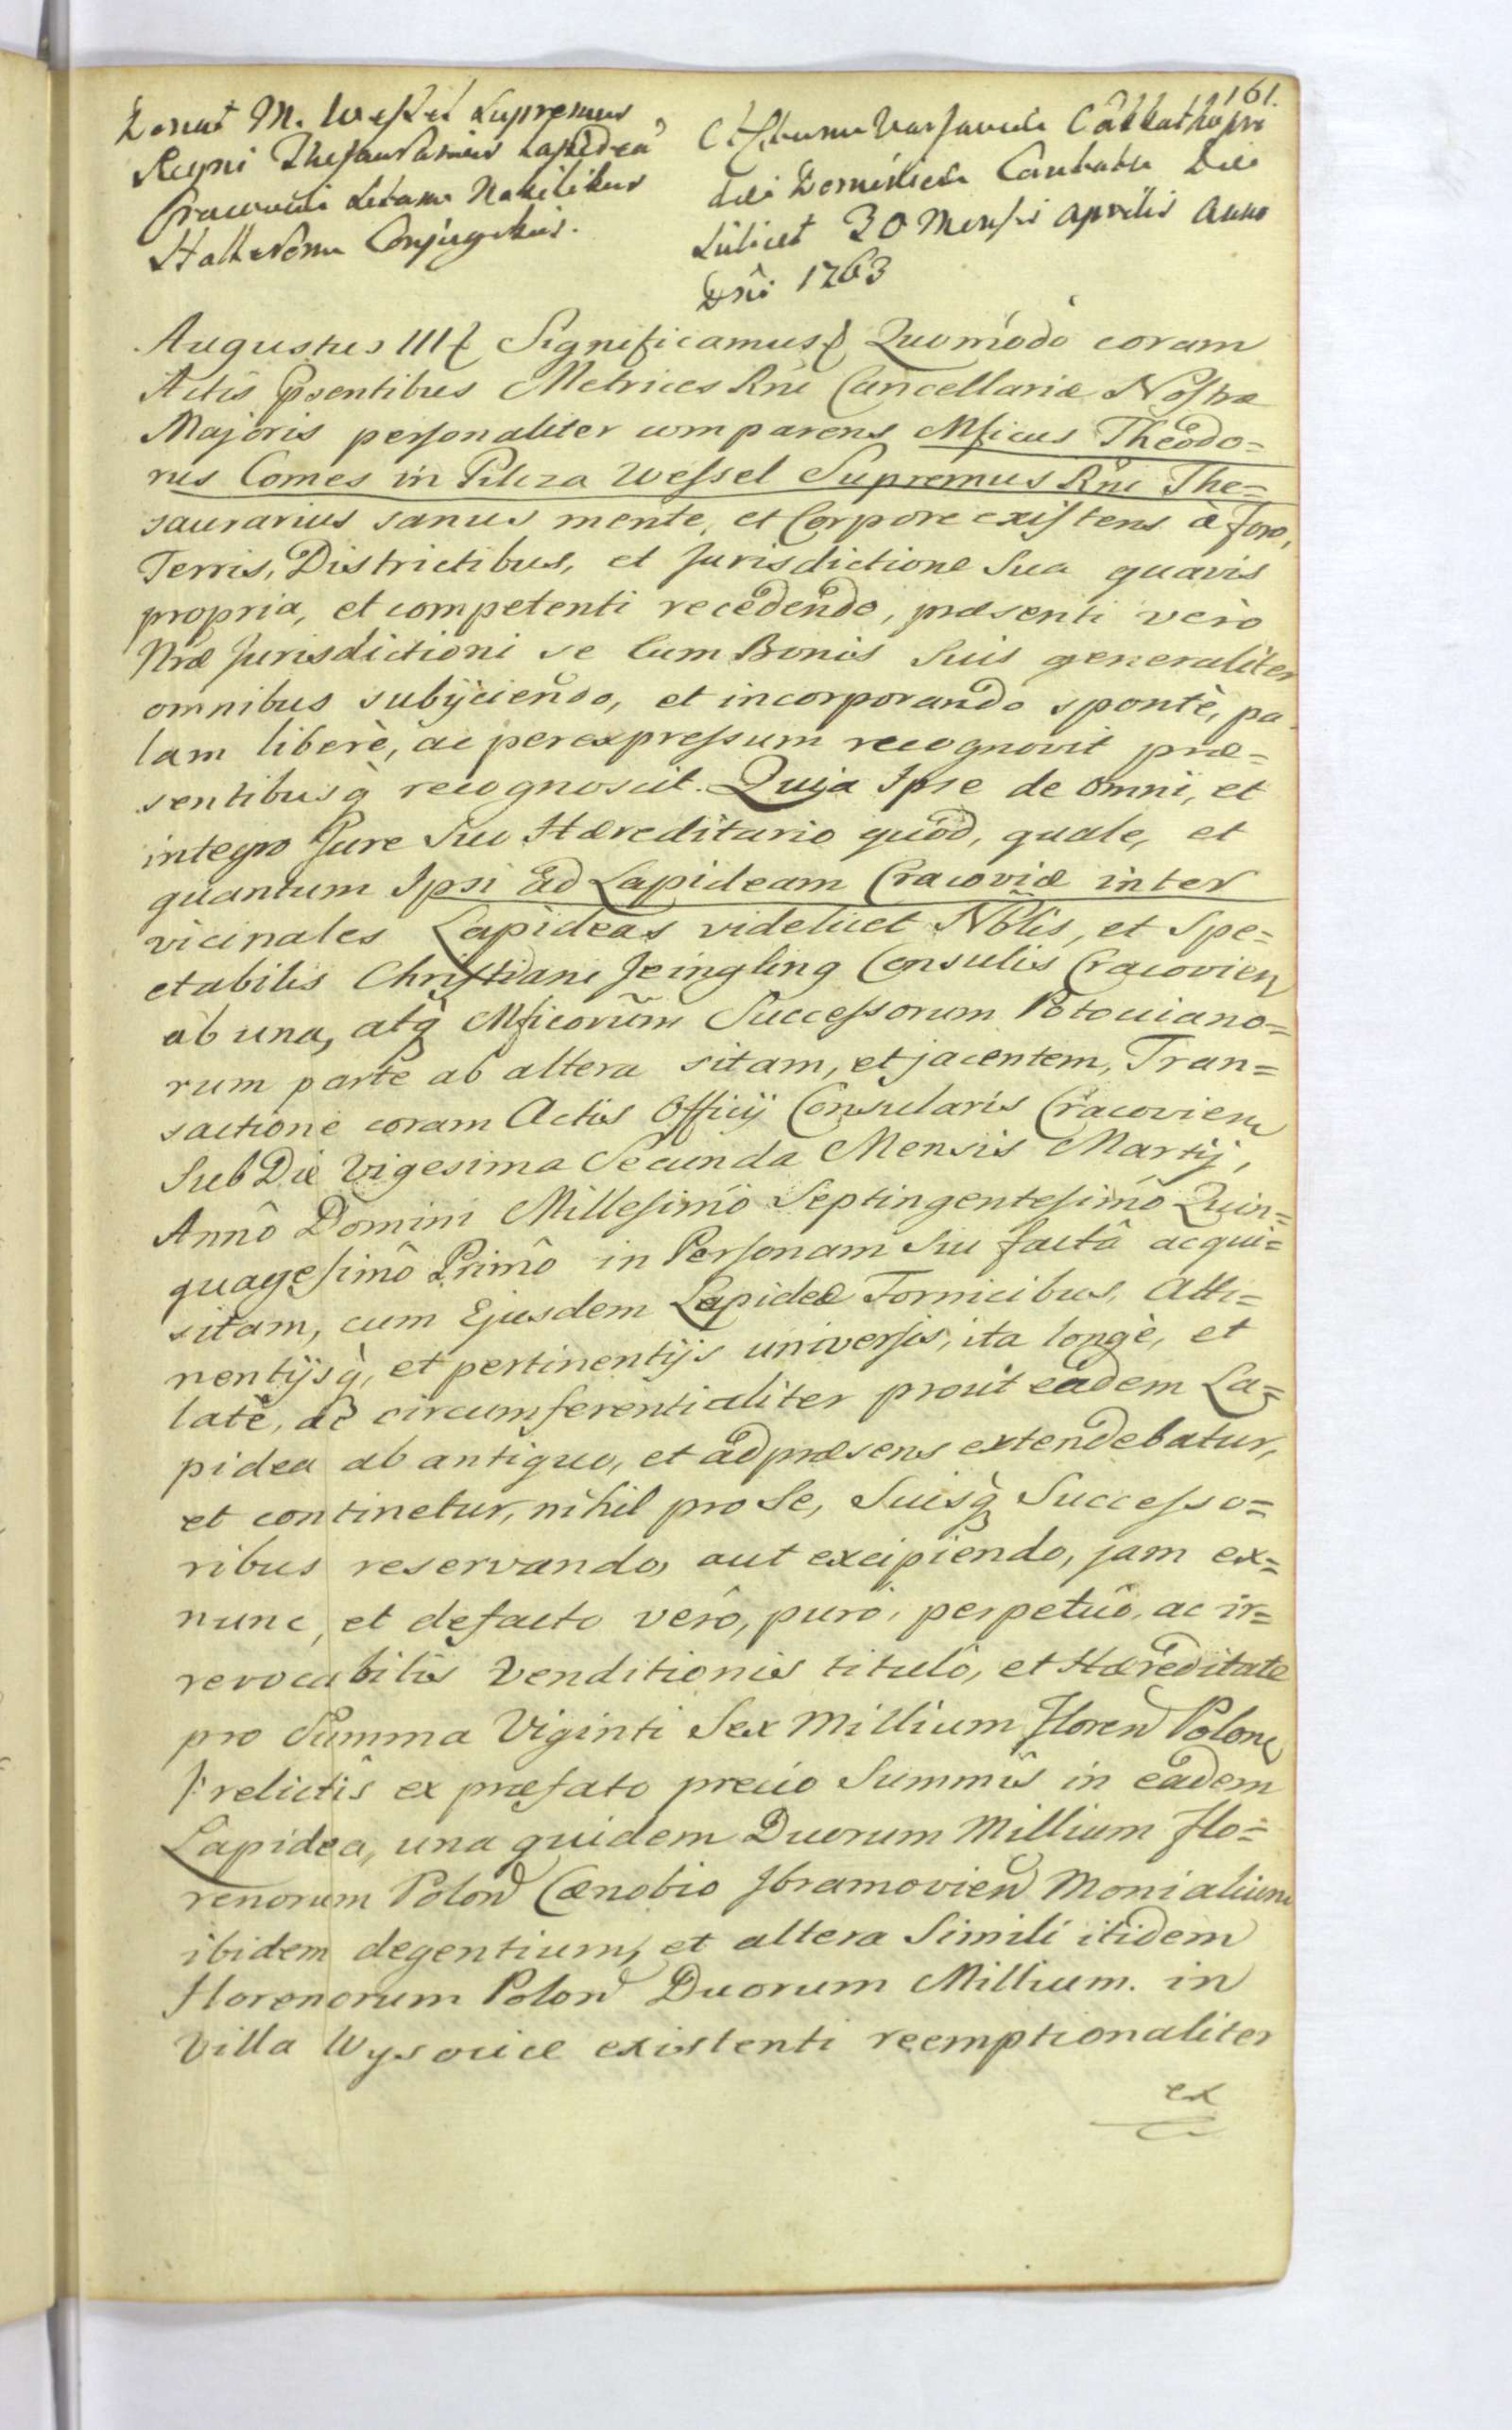 161.
Donat M. Wessel Supremus
Regni Thesaurarius Lapideã
Cracoviæ sitam Nobilibus
Hallerom Conjugibus.
Actum Varsaviæ Sabbatho pro
die Dominica Cantate Die
scilicet 30 Mensis Aprilis Anno
Dnî 1763
Augustus III Significamus Quomodo coram
Actis Psentibus Metrices Rni Cancellariæ Nostræ
Majoris personaliter comparens Mficus Theodo=
rus Comes in Pilcza Wessel Supremus Rni The=
saurarius sanus mente, et Corpore existens à foro,
Terris, Districtibus, et Jurisdictione Sua quavis
propria, et competenti recedendo, præsenti verò
Nræ Jurisdictioni se cum Bonis Suis generaliter
omnibus subijciendo, et incorporando spontè, pa
lam liberè, ac per expressum recognovit præ=
sentibusq̀ recognoscit. Quia Ipse de omni, et
integro Jure Suo Hæreditario quod, quale, et
quantum Ipsi ad Lapideam Cracoviæ inter
vicinales Lapideas videlicet Nblis, et Spe=
ctabilis Christiani Jeingling Consulis Cracovien
ab una, atq̀ Mficorum Successorum Potociano=
rum parte ab altera sitam, et jacentem, Tran=
sactione coram Actis Officij Consularis Cracovien
Sub Die Vigesima Secunda Mensis Martij,
Annô Domini Millesimô Septingentesimô Quin=
quagesimô Primô in Personam Sui factâ acqui=
sitam, cum Ejusdem Lapideæ Fornicibus, Atti=
nentijsq̀, et pertinentijs universis, ita longè, et
latè, ac circumferentialiter prout eadem La=
pidea ab antiquo, et ad præsens extendebatur,
et continetur, nihil pro Se, Suisq̀ Successo=
ribus reservando, aut excipiendo, jam ex=
nunc, et defacto verô, purô, perpetuô, ac ir=
revocabilis Venditionis titulô, et Hæreditate
pro Summa Viginti Sex Millium Floren Polon
/: relictis ex præfato precio Summis in eadem
Lapidea, una quidem Duorum Millium Flo=
renorum Polon Cænobio Jbramovien Monialium
ibidem degentium, et altera Simili itidem
Florenorum Polon Duorum Millium in
Villa Wysocice existenti reemptionaliter
ex